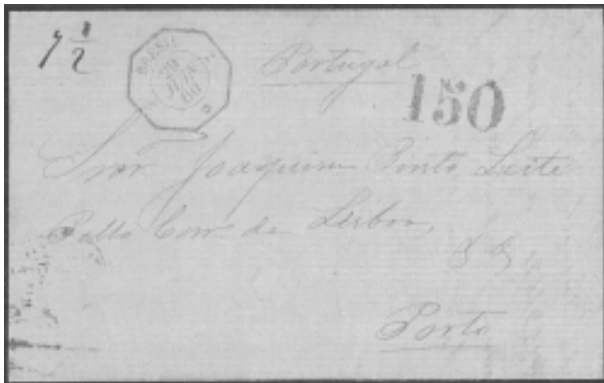 7 1/2
BRESIL
29
JUIN
66
Portugal
150
Snr Joaquim Pinto Leite
Pello Corro de Lisboa,
Porto